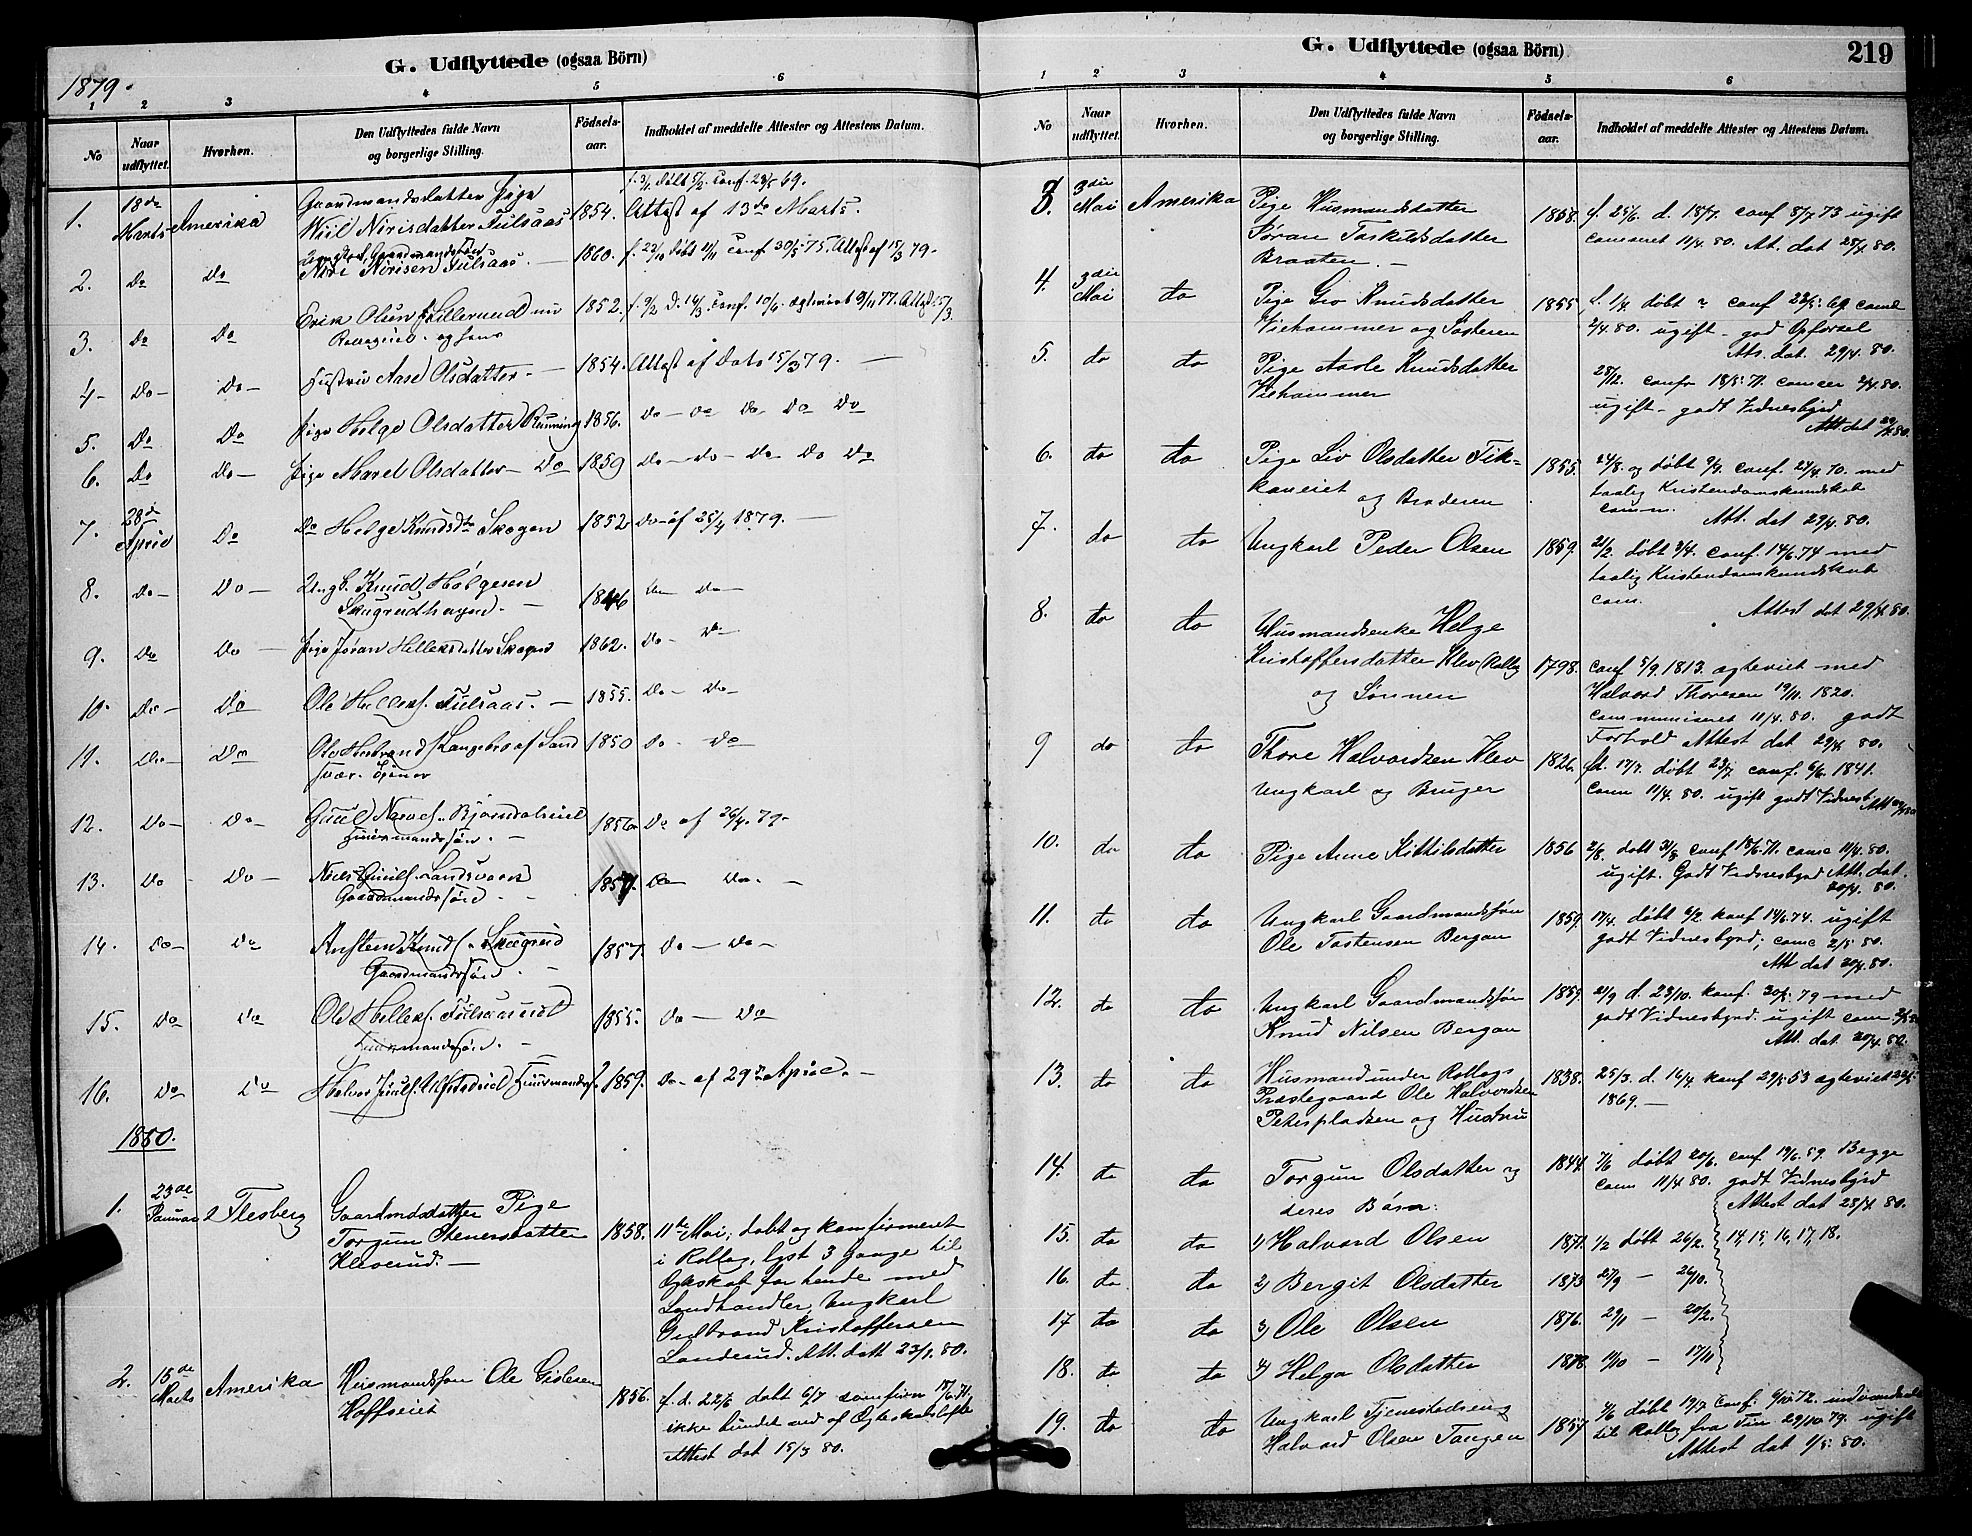 G. Udflyttede (ogsaa Börn)
1879.
1 2 3 4 5 6
No
Naar udflyttet.
Hvorhen.
Den Udflyttedes fulde Navn og borgerlige Stilling.
Födsels-aar.
Indholdet af meddelte Attester og Attestens Datum.
1. 18de Marts Amerika Gaardmandsdatter Pige 1854. f. 3/1 døbt 5/2 Conf. 23/5 69.
Nirisdatter Fulsaas Attest af 13de Marts.
2. Do Do Nirisen Fulsaas. 1860. Conf 30/5 75. Attest af 15/3 79.
3. Do Do Erik Olsen 1852.
Rollageiet og hans
4 Do Do Hustru Aase Olsdatter 1854. Attest af Dato 15/3 79.
5. Do Do Pige Helge Olsdatter 1856. Do Do Do Do Do
6. Do Do Pige Marel Olsdatter Do 1859 Do Do Do Do Do
7. 28de April Do Do Helge Knudsdtr Skogen 1852 Do af 25/4 1879.
8. Do Do Ungk. Knud Helgesen 1846 Do Do
9. Do Do Pige Jøran Helleksdatter Skogen 1862. Do Do
10. Do Do Ole Helleks. Fulsaas. 1855. Do Do
11. Do Do Ole Herbrands. Langebro af Sand 1850 Do Do
svær.
12. Do Do Guul 1856 Do af 26/4 79
Huusmandssøn.
13. Do Do Niels Guuls. Landsværk 1857. Do Do
Gaardmandssøn.
14. Do Do Knuds. Skogrud 1857. Do Do
Gaardmandssøn.
15. Do Do Ole Helleks. 1855. Do Do
Huusmandssøn.
16. Do Do Halvor Huusmands. 1859. Do af 29de April.
1880.
1. 23de Januar Flesberg Gaardmdsdatter Pige
Torgun Stenersdatter 1858. 11te Mai, døbt og konfirmeret
Kleverud. i Rollag, lyst 3 Gange til
Egteskab for hende med
Landhandler, Ungkarl
Gulbrand Kristoffersen
Landerud. Att. datt 23/1. 80.
2. 15de Marts Amerika Husmandssøn Ole Gislesen
Hoffseiet 1856. f. d. 22/6 døbt 6/7 confirm 18/6. 71.
ikke bundet ved af Egteskabsløfte
Attest dat 15/3 80.
G. Udflyttede (ogsaa Börn)
219
1 2 3 4 5 6
No
Naar udflyttet.
Hvorhen.
Den Udflyttedes fulde Navn og borgerlige Stilling.
Födsels-aar.
Indholdet af meddelte Attester og Attestens Datum.
3. 3die Mai Amerika Pige Husmandsdatter 1858. f. 25/6. d. 18/7. conf 8/7 73 ugift
Jøran Taskildsdatter comseret 11/4. 80. Att. dat 28/4 80.
Braaten.
4. 3die Mai do Pige Gro Knudsdatter 1855 f. 1/4 døbt ? conf 23/5 69 come
Viehammer og Søsteren 2/4. 80. ugift - god Opførsel
Att. dat. 29/4. 80.
5. do do Pige Aasle Knudsdatter 28/12. confr 18/6 71. comser 2/4. 80.
Viehammer ugift - godt Vidnesbyrd
Att. dat 29/4. 80.
6. do do Pige Liv Olsdatter Fik- 1855. 24/8. og døbt 9/9. conf. 24/4. 70. med
kaneiet taalig Kristendomskundskab
og Broderen comm. Att. dat 29/4. 80.
7. do do Ungkarl Peder Olsen 1859. 21/2. døbt 3/4. conf. 14/6. 74 med
taalig Kristendomskundskab
com. Attest dat 29/4. 80.
8. do do Husmandsenke Helge
Kristoffersdatter Klev (Rollag 1798. conf 5/9. 1813. egteviet med
og Sønnen Halvord Thoresen 19/11. 1820.
communiseret 11/4. 80. godt
Forhold Attest dat 29/4. 80.
9 do do Thore Halvordsen Klev 1826. fd. 17/7. døbt 23/7 conf. 6/6. 1841.
Ungkarl og Bruger com 11/4. 80. ugift godt Vidnesb. Att
10. do do Pige Anne Kittilsdatter 1856 2/8. døbt 31/8 conf 18/6. 71. come 11/4. 80.
ugift. Godt Vidnesbyrd Att. dat.
20/4. 80.
11. do do Ungkarl Gaardmandssøn 1859. 17/4. døbt 6/2. konf 14/6. 74. ugift
Ole Tostensen Bergan godt Vidnesbyrd; come 2/5 80.
Att dat 20/4. 80.
12. do do Ungkarl Gaardmandssøn 1859. 21/9 d. 23/10. konf. 30/5. 79 med
Knud Nilsen Bergan godt Vidnesbyrd. ugift com 2/5 80
Att. dat 20/4. 80.
13. do do Husmand under Rollags 1838. 25/3. d. 16/4. konf 29/5 53 egteviet 22/5
Præstegaard Ole Halvordsen 1869.
Peterspladsen og Hustru
14. do do Torgun Olsdatter og 1844. 7/6 døbt 20/6. conf 19/6. 59. Begge
deres Børn: com 11/4 80. godt Vidnesbyrd
Attest dat 28/4. 80.
15. do do 1) Halvord Olsen 1871. 1/2 døbt 26/2. 14, 15, 16, 17, 18.
16. do do 2) Bergit Olsdatter 1873 27/9 — 26/10.
17 do do 3) Ole Olsen 1876. 29/1 — 20/2.
18. do do 4) Helga Olsdatter 1878. 19/10 — 17/11
19. do do Ungkarl Tjenestedreng 1857 4/6 døbt 19/7 conf. 6/10. 72. indvandret
Halvord Olsen Tangen til Rollag fra Tin 29/10 79. ugift
Attest dat 1/5. 80.